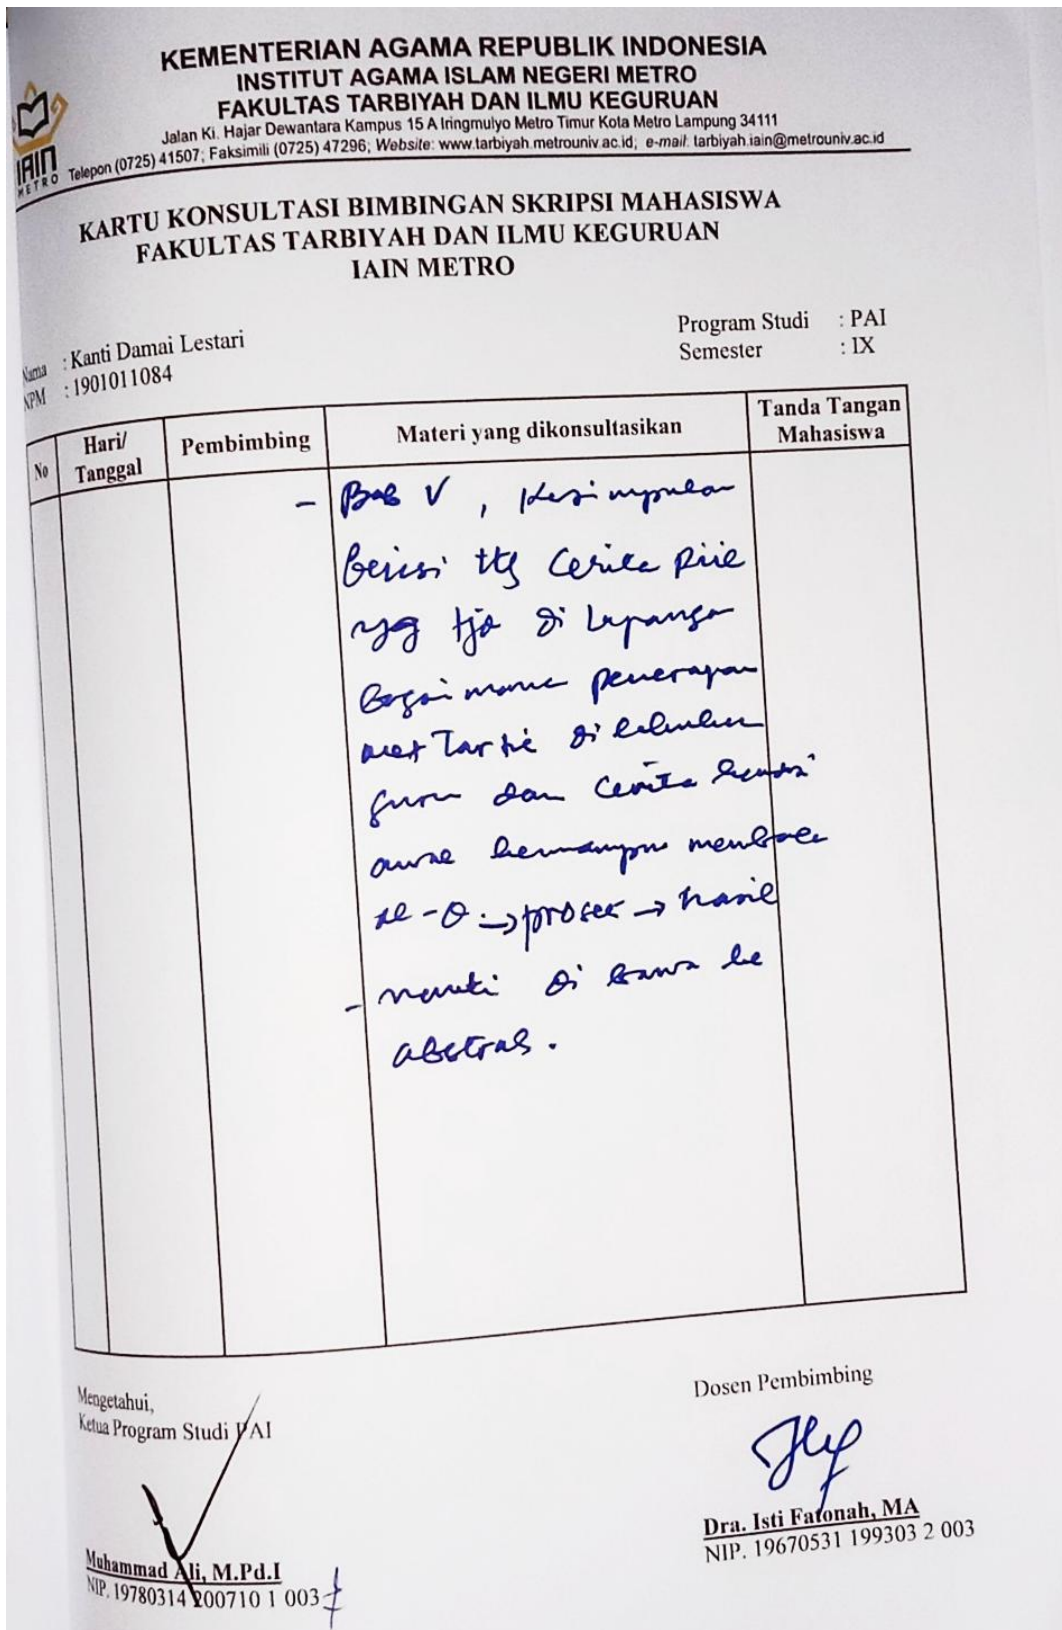 KEMENTERIAN AGAMA REPUBLIK INDONESIA
INSTITUT AGAMA ISLAM NEGERI METRO
FAKULTAS TARBIYAH DAN ILMU KEGURUAN
Jalan Ki. Hajar Dewantara Kampus 15 A Iringmulyo Metro Timur Kota Metro Lampung 34111
Telepon (0725) 41507; Faksimili (0725) 47296; Website: www.tarbiyah.metrouniv.ac.id; e-mail: tarbiyah.iain@metrouniv.ac.id
IAIN
METRO
KARTU KONSULTASI BIMBINGAN SKRIPSI MAHASISWA
FAKULTAS TARBIYAH DAN ILMU KEGURUAN
IAIN METRO
Nama : Kanti Damai Lestari
NPM : 1901011084
Program Studi : PAI
Semester : IX
No
Hari/
Tanggal
Pembimbing
Materi yang dikonsultasikan
Tanda Tangan
Mahasiswa
- Bab V, Kesimpulan
berisi ttg Cerita
yg tjd di lapangan
Bagaimana penerapan
met Tartil di lakukan
guru dan Cerita kondisi
awal kemampuan membaca
al-Q → proses → hasil
- nanti di bawa ke
abstrak.
Mengetahui,
Ketua Program Studi PAI
Muhammad Ali, M.Pd.I
NIP. 19780314 200710 1 003
Dosen Pembimbing
Dra. Isti Fatonah, MA
NIP. 19670531 199303 2 003